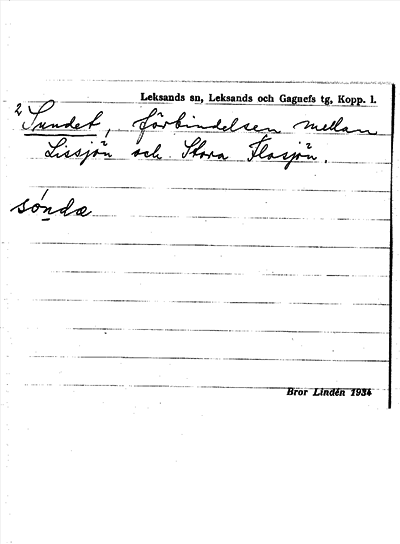 Leksands sn, Leksands och Gagnefs tg, Kopp. l.
2 Sundet, förbindelsen mellan
Lissjön och Stora Flosjön.
sóndæ
Bror Lindén 1934